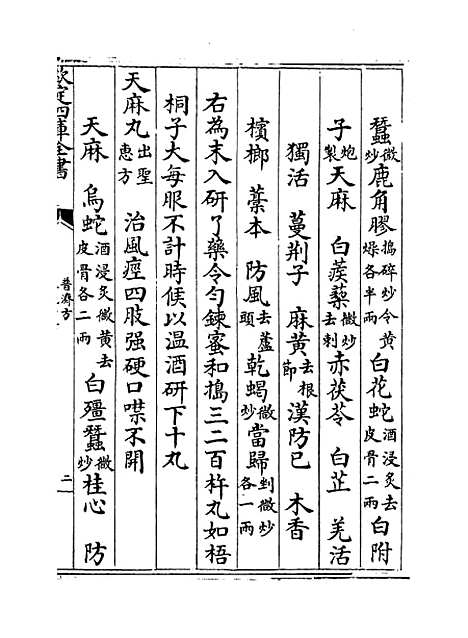 蠶微炒鹿角膠搗碎炒令黄燥各半兩白花蛇酒浸炙去皮骨二兩白附
子炮製天麻 白蒺藜微炒去刺赤茯苓 白芷 羌活
獨活 蔓荆子 麻黄去根節漢防已 木香
檳榔 藁本 防風去蘆頭乾蝎微炒當歸剉微炒各一兩
右為末入研了藥令匀鍊蜜和搗三二百杵丸如梧
桐子大每服不計時候以温酒研下十丸
天麻丸出聖惠方 治風痙四肢强硬口噤不開
天麻 烏蛇酒浸炙微黄去皮骨各二兩白殭蠶微炒桂心 防
欽定四庫全書
普濟方
二